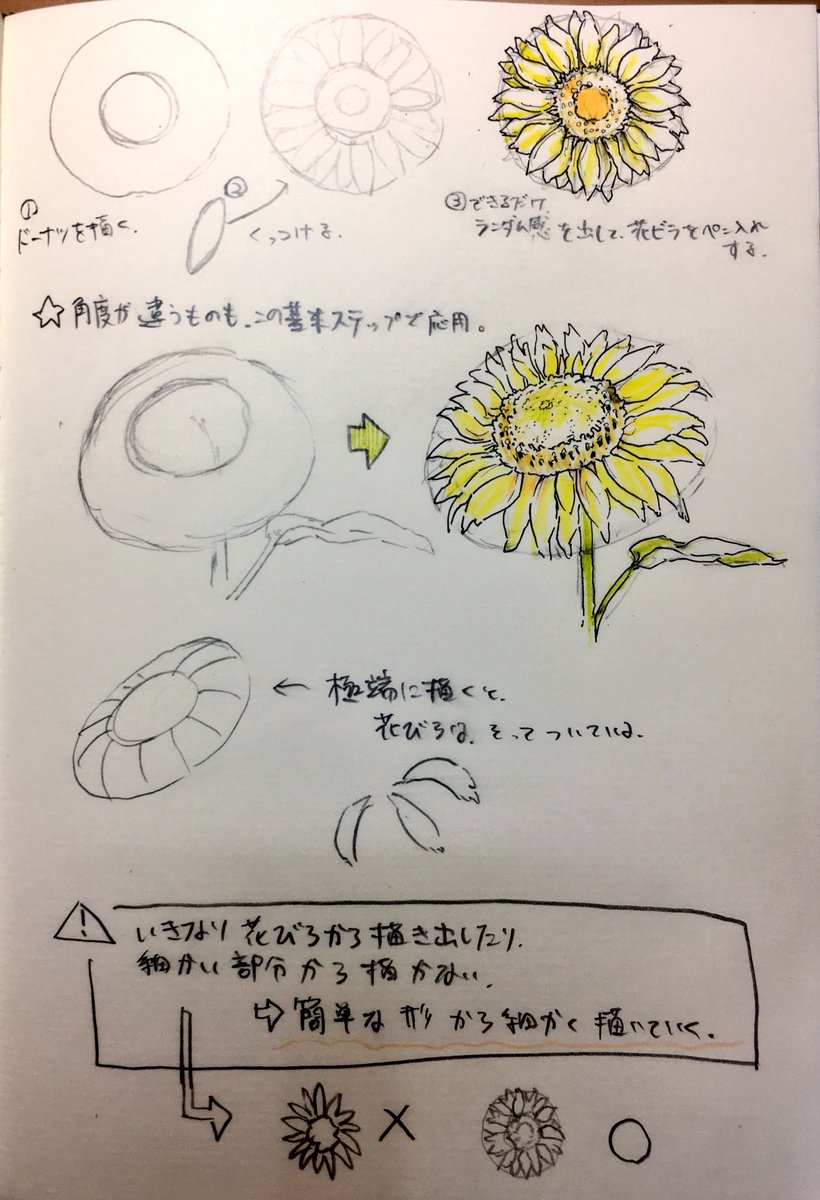 ①
ドーナツを描く.
②
くっつける.
③できるだけ
ランダム感を出して、花ビラをペン入れ
する.
☆角度が違うものも、この基本ステップで応用。
← 極端に描くと、
花びらは、そってついている.
いきなり花びらから描き出したり、
細かい部分から描かない.
⇨簡単な形から細かく描いていく.
× ○